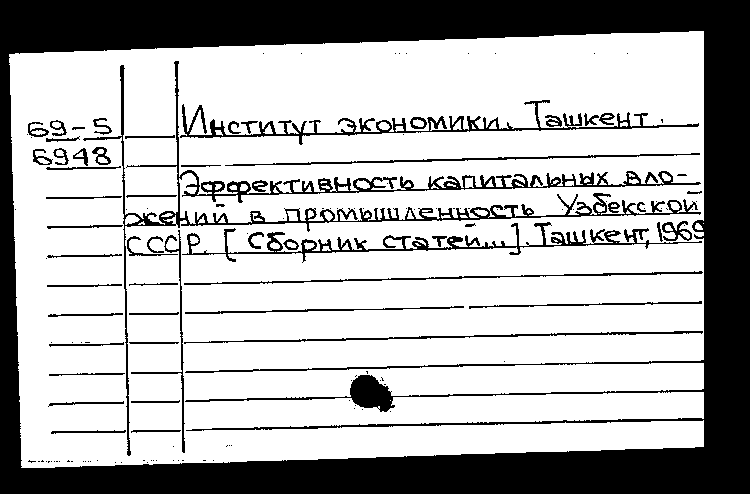 69-5
6948
Институт экономики. Ташкент.
Эффективность капитальных вло-
жений в промышленность Узбекской
СССР. [Сборник статей...]. Ташкент, 1969